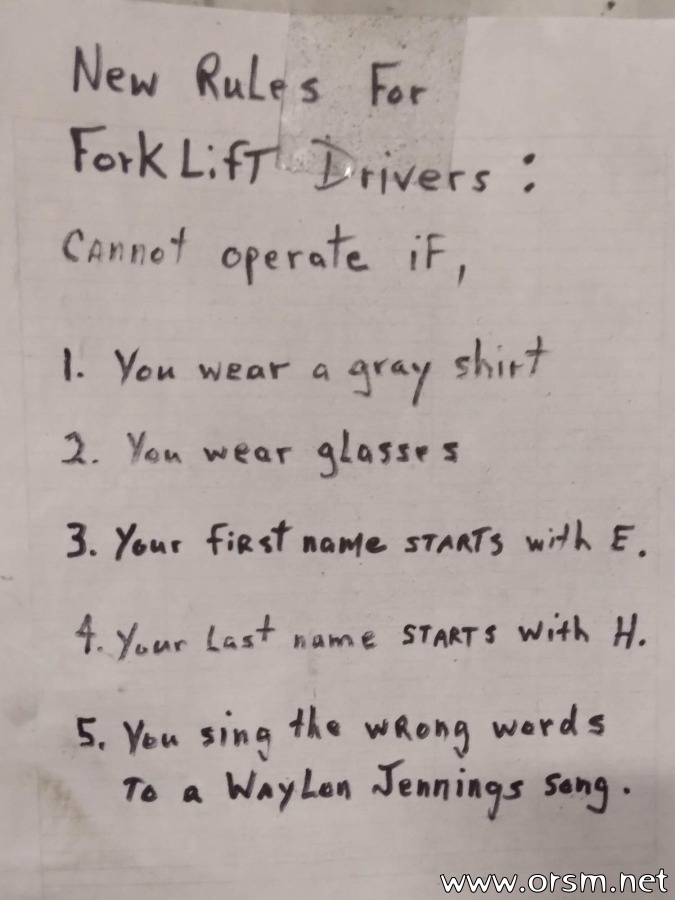 New Rules For
Fork Lift Drivers:
Cannot operate if,
1. You wear a gray shirt
2. You wear glasses
3. Your first name STARTS with E.
4. Your Last name STARTS with H.
5. You sing the wrong words
To a Waylon Jennings song.
www.orsm.net